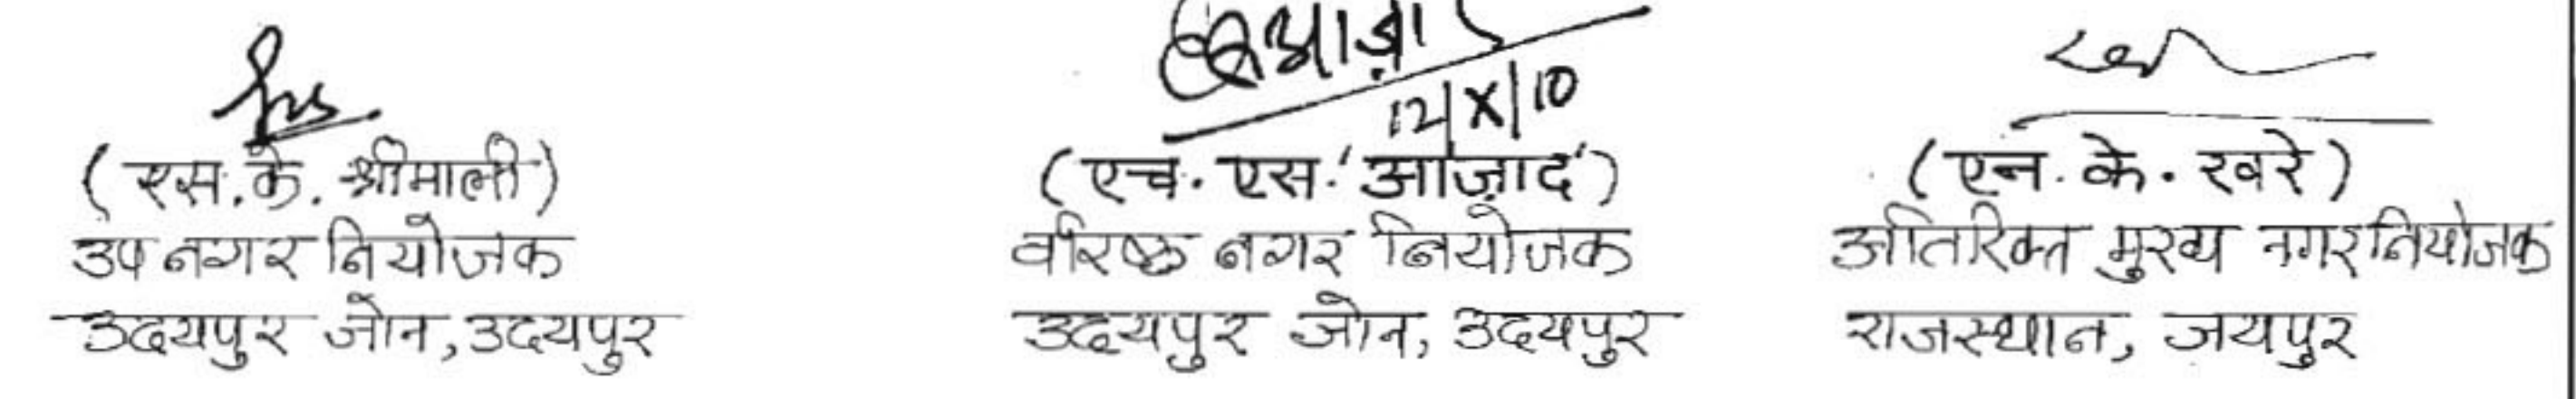 12/X/10
(एस.के. श्रीमाली)
उप नगर नियोजक
उदयपुर जोन, उदयपुर
(एच. एस. 'आज़ाद')
वरिष्ठ नगर नियोजक
उदयपुर जोन, उदयपुर
(एन. के. खरे)
अतिरिक्त मुख्य नगर नियोजक
राजस्थान, जयपुर